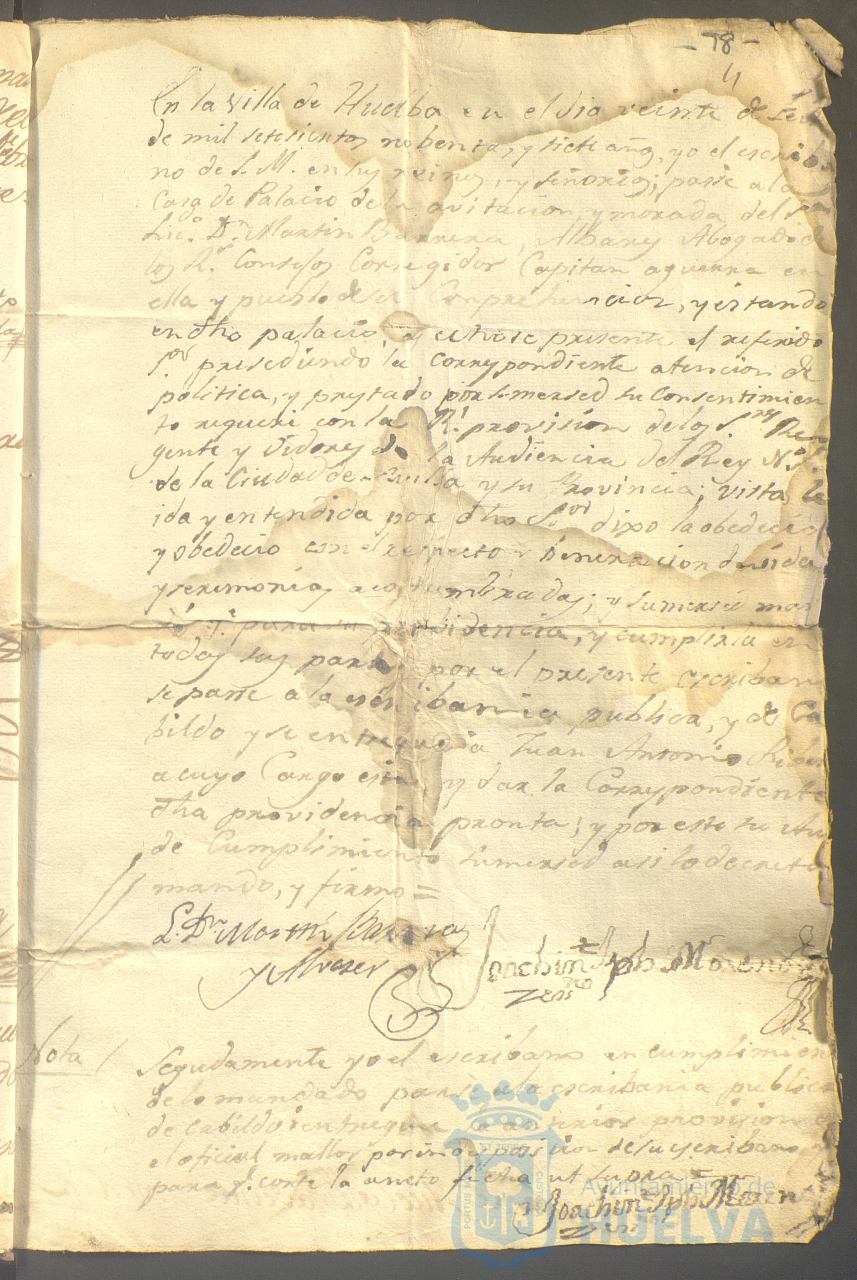 - 78 -
4
En la Villa de Huelba en el dia veinte de
de mil setesientos nobenta, y siete años, yo el escriba
no de S. M. en sus reinos, y señorios; passe a la
Casa de Palacio de la avitacion, y morada del Sr
Licdo Dn Martin Barrera, Albares Abogado de
los Rs Consejos Corregidor Capitan aguerra en
ella y pueblos de su Comprehencion, y estando
en dho palacio, y echose presente el referido
Sor presediendo la correspondiente atencion de
politica, y prestado por su mersed su Consentimien
to requeri con la Rl provision de los Sres Re
gente y Oidores de la Audiencia del Rey N. S.
de la Ciudad de Sevilla y su Provincia; vista le
ida y entendida por dho Sor dixo la obedecia
y obedecio con el respecto y beneracion devida
y seremonias acostumbradas; y su mersed man
dó para su providencia, y cumplirla en
todas sus partes por el presente escribano
se passe a la escribania publica, y de Ca
bildo y se entregue a Juan Antonio
a cuyo Cargo esta y dar la Correspondiente
dha providencia pronta; y por este su Auto
de Cumplimiento su mersed asi lo decreto
mando, y firmo =
L. Dn Martin Barrera
y Alvares
Joachin Jph Moreno
Nota /
Seguidamente yo el escribano en cumplimien
de lo mandado passe a la escribania publica
de Cabildo i entregue anterior provision
el oficial mallor por indisposicion de su escribano y
para q. conste la anoto fecha ut supra =
Joachin Jph Moreno
Ayuntamiento de
HUELVA